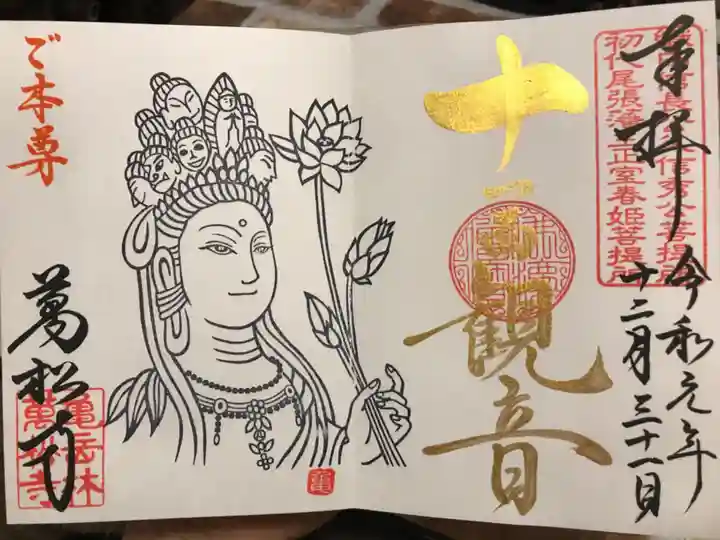 奉拝
令和元年
十二月三十一日
織田信長公父信秀公菩提所
初代尾張藩主正室春姫菩提所
十一面観音
ご本尊
萬松寺
亀岳林
萬松寺